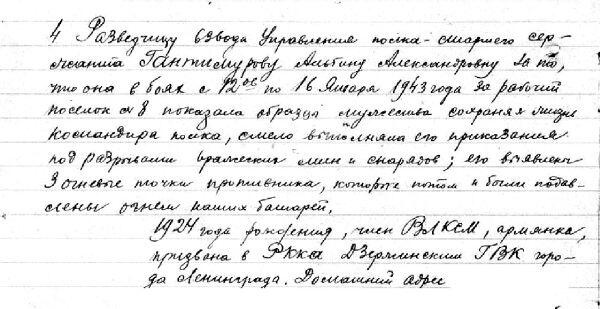 4 Разведчицу взвода Управления полка - старшего сер-
жанта Гантимурову Альбину Александровну за то,
что она в боях с 12ое по 16 Января 1943 года за рабочий
поселок № 8 показала образцы мужества сохраняя жизнь
командира полка, смело выполняла его приказания
под разрывами вражеских мин и снарядов; ею выявлены
3 огневые точки противника, которые потом и были подав-
лены огнем наших батарей.
1924 года рождения, член ВЛКСМ, армянка,
призвана в РККА Дзержинским ГВК горо-
да Ленинграда. Домашний адрес